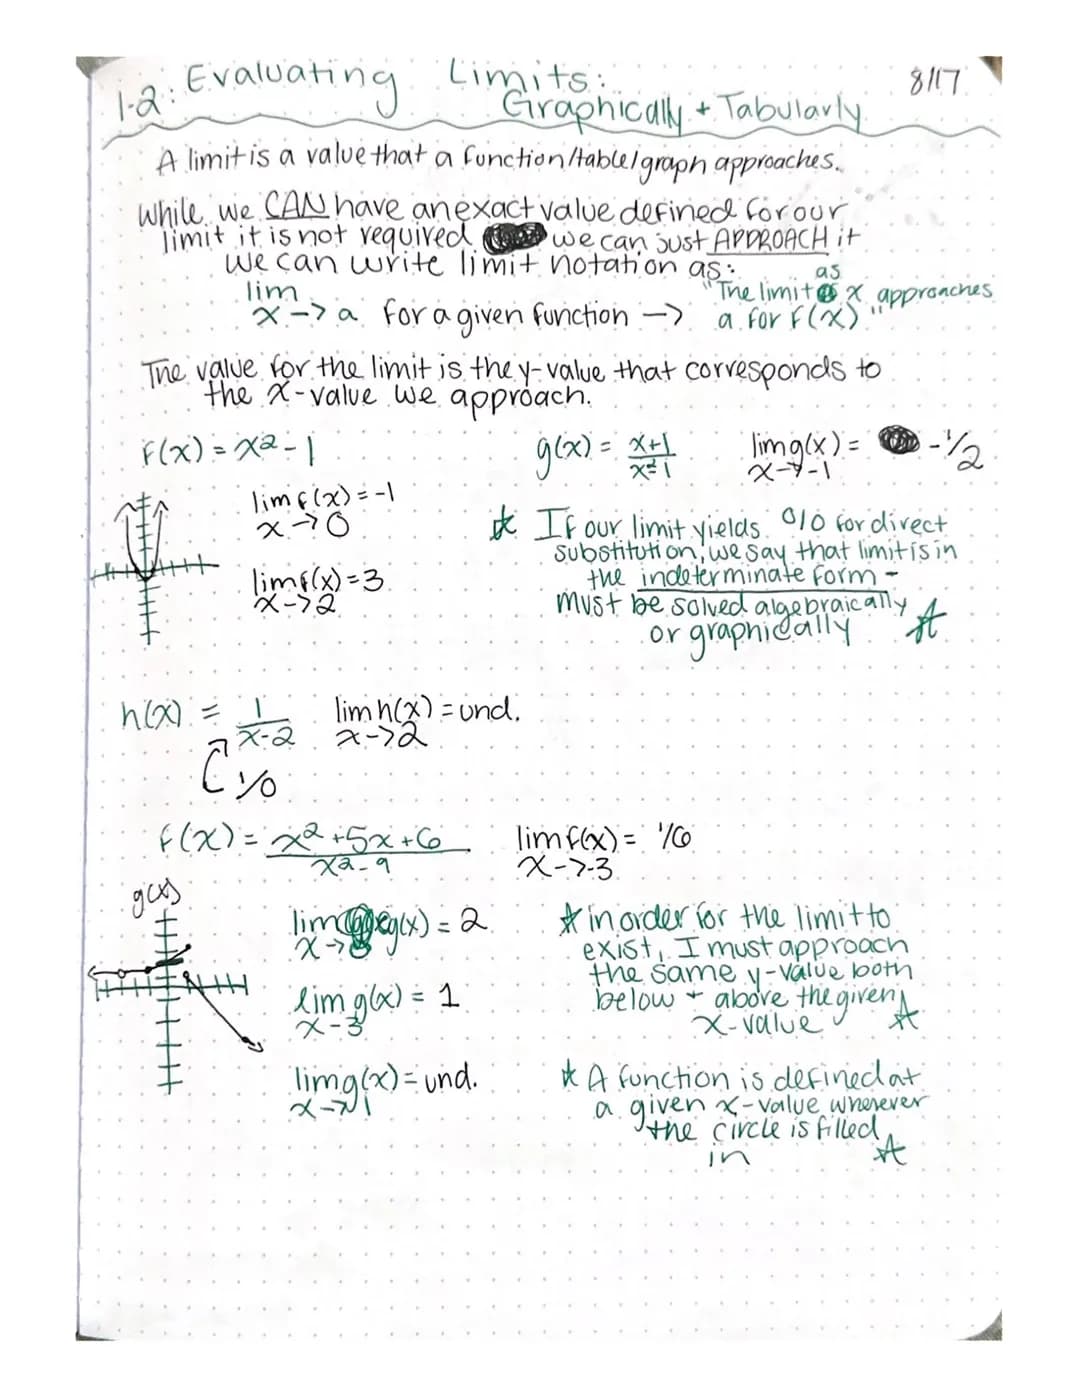 1-2: Evaluating Limits: 8/17
Graphically + Tabularly
A limit is a value that a function/table/graph approaches.
While we CAN have an exact value defined for our
limit it is not required we can just APPROACH it
We can write limit notation as:
lim
x -> a for a given function -> "The limit as x approaches
a for f(x)"
The value for the limit is the y-value that corresponds to
the x-value we approach.
f(x) = x² - 1
lim f(x) = -1
x -> 0
lim f(x) = 3
x -> 2
g(x) = x+1 / x²-1
lim g(x) = -1/2
x -> -1
☆ If our limit yields 0/0 for direct
substitution, we say that limit is in
the indeterminate form -
must be solved algebraically
or graphically ☆
h(x) = 1 / x-2
1/0
lim h(x) = und.
x -> 2
f(x) = x² + 5x + 6 / x² - 9
lim f(x) = 1/6
x -> -3
g(x)
lim g(x) = 2
x ->
lim g(x) = 1
x - 3
lim g(x) = und.
x -> 1
☆ in order for the limit to
exist, I must approach
the same y-value both
below + above the given
x-value ☆
☆ A function is defined at
a given x-value wherever
the circle is filled
in ☆